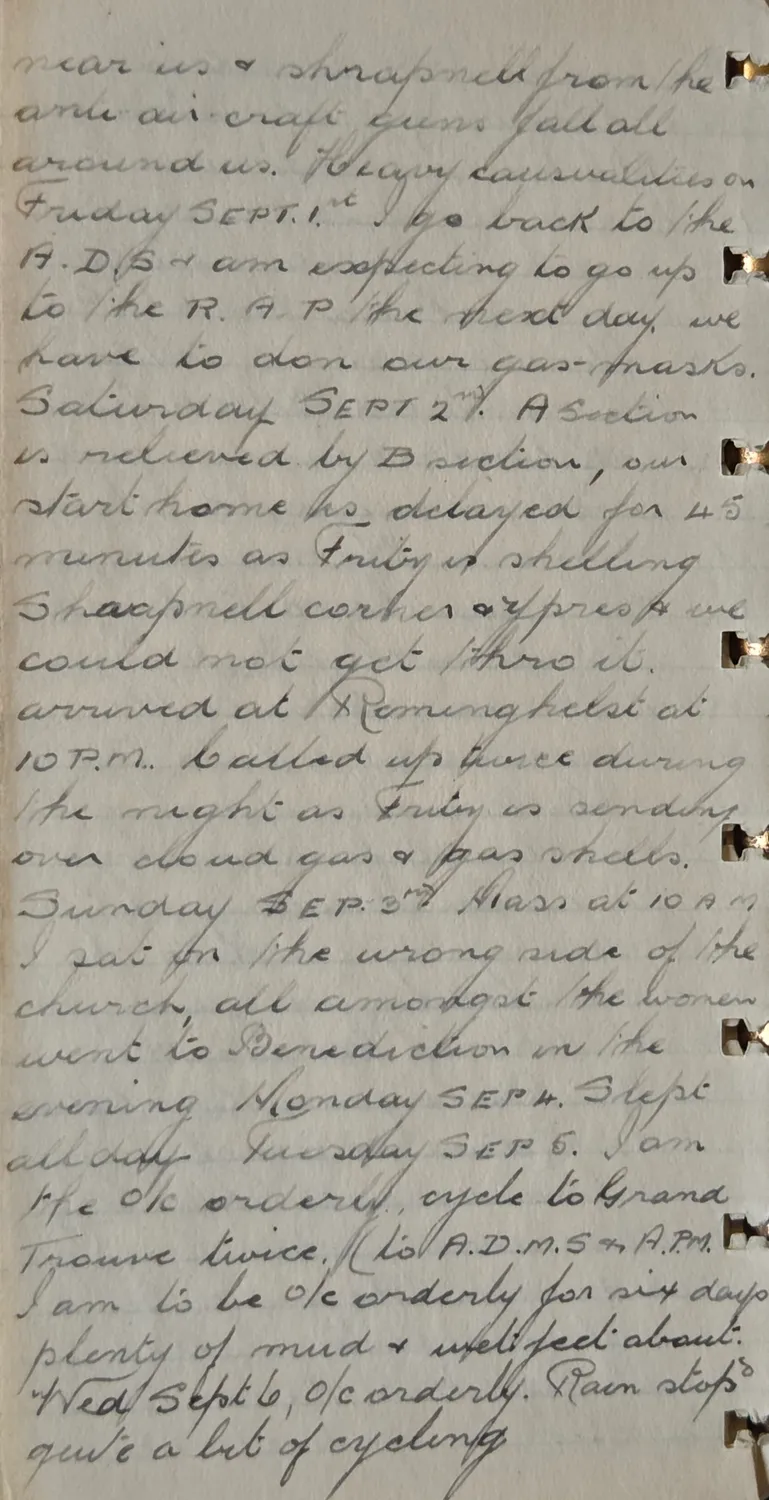 near us & shrapnell from the
anti air-craft guns fall all
around us. Heavy causualities on
Friday SEPT. 1.st I go back to the
A.D.S & am expecting to go up
to the R.A.P the next day. we
have to don our gas-masks.
Saturday SEPT 2nd. A Section
is relieved by B section, our
start home is delayed for 45
minutes as Fritz is shelling
Shrapnell corner & Ypres & we
could not get thro it.
arrived at Reminghelst at
10 P.M. Called up twice during
the night as Fritz is sending
over cloud gas & gas shells.
Sunday SEP. 3rd Mass at 10 AM
I sat on the wrong side of the
church, all amongst the women
went to Benediction in the
evening Monday SEP 4. Slept
all day Tuesday SEP 5. I am
the O/c orderly, cycle to Grand
Trouve twice. (to A.D.M.S & A.P.M.
I am to be O/c orderly for six days
plenty of mud & wet feet about.
Wed Sept 6, O/c orderly. Rain stops
quite a bit of cycling